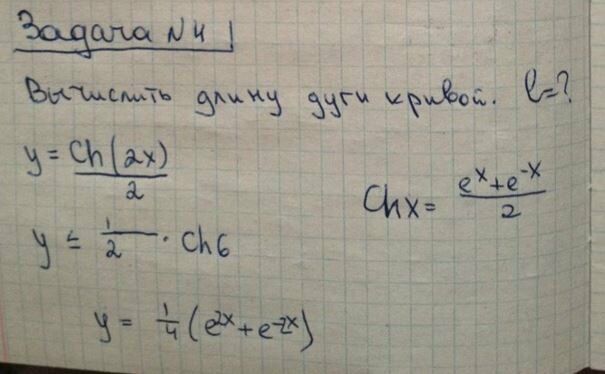 Задача №4
Вычислить длину дуги кривой. l=?
y = Ch(2x)/2
Chx = (e^x + e^-x)/2
y ≤ 1/2 · Ch6
y = 1/4 (e^2x + e^-2x)